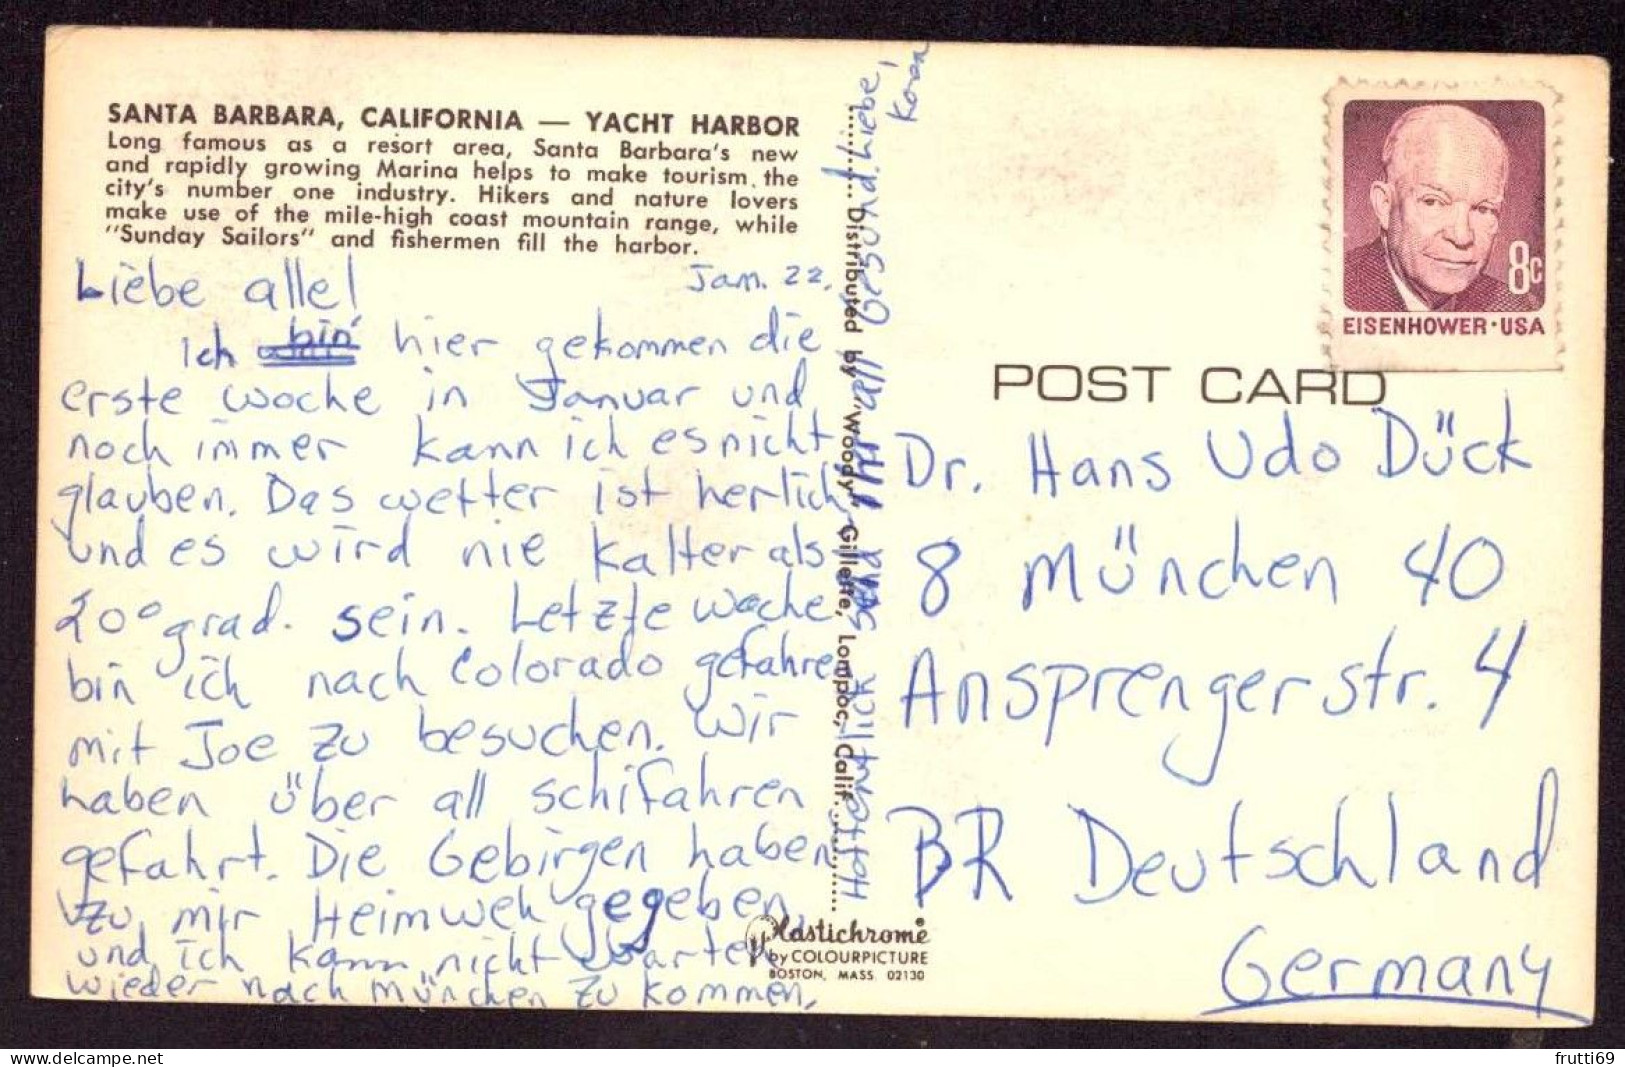 SANTA BARBARA, CALIFORNIA — YACHT HARBOR
Long famous as a resort area, Santa Barbara's new
and rapidly growing Marina helps to make tourism the
city's number one industry. Hikers and nature lovers
make use of the mile-high coast mountain range, while
"Sunday Sailors" and fishermen fill the harbor.
Jam. 22,
Liebe alle!
Ich bin hier gekommen die
erste woche in Januar und
noch immer kann ich es nicht
glauben. Das wetter ist herlich
und es wird nie kalter als
20° grad. sein. Letzte woche
bin ich nach Colorado gefahre
mit Joe zu besuchen. Wir
haben über all schifahren
gefahrt. Die Gebirgen haben
zu mir Heimweh gegeben,
und ich kann nicht warten
wieder nach München zu kommen.
Hoffentlich send Ihr all Gesund. Liebe,
Koren
Distributed by "Woody" Gillette, Lompoc, Calif.
Plastichrome®
by COLOURPICTURE
BOSTON, MASS. 02130
8c
EISENHOWER·USA
POST CARD
Dr. Hans Udo Dück
8 München 40
Ansprengerstr. 4
BR Deutschland
Germany
https://www.delcampe.net
frutti69